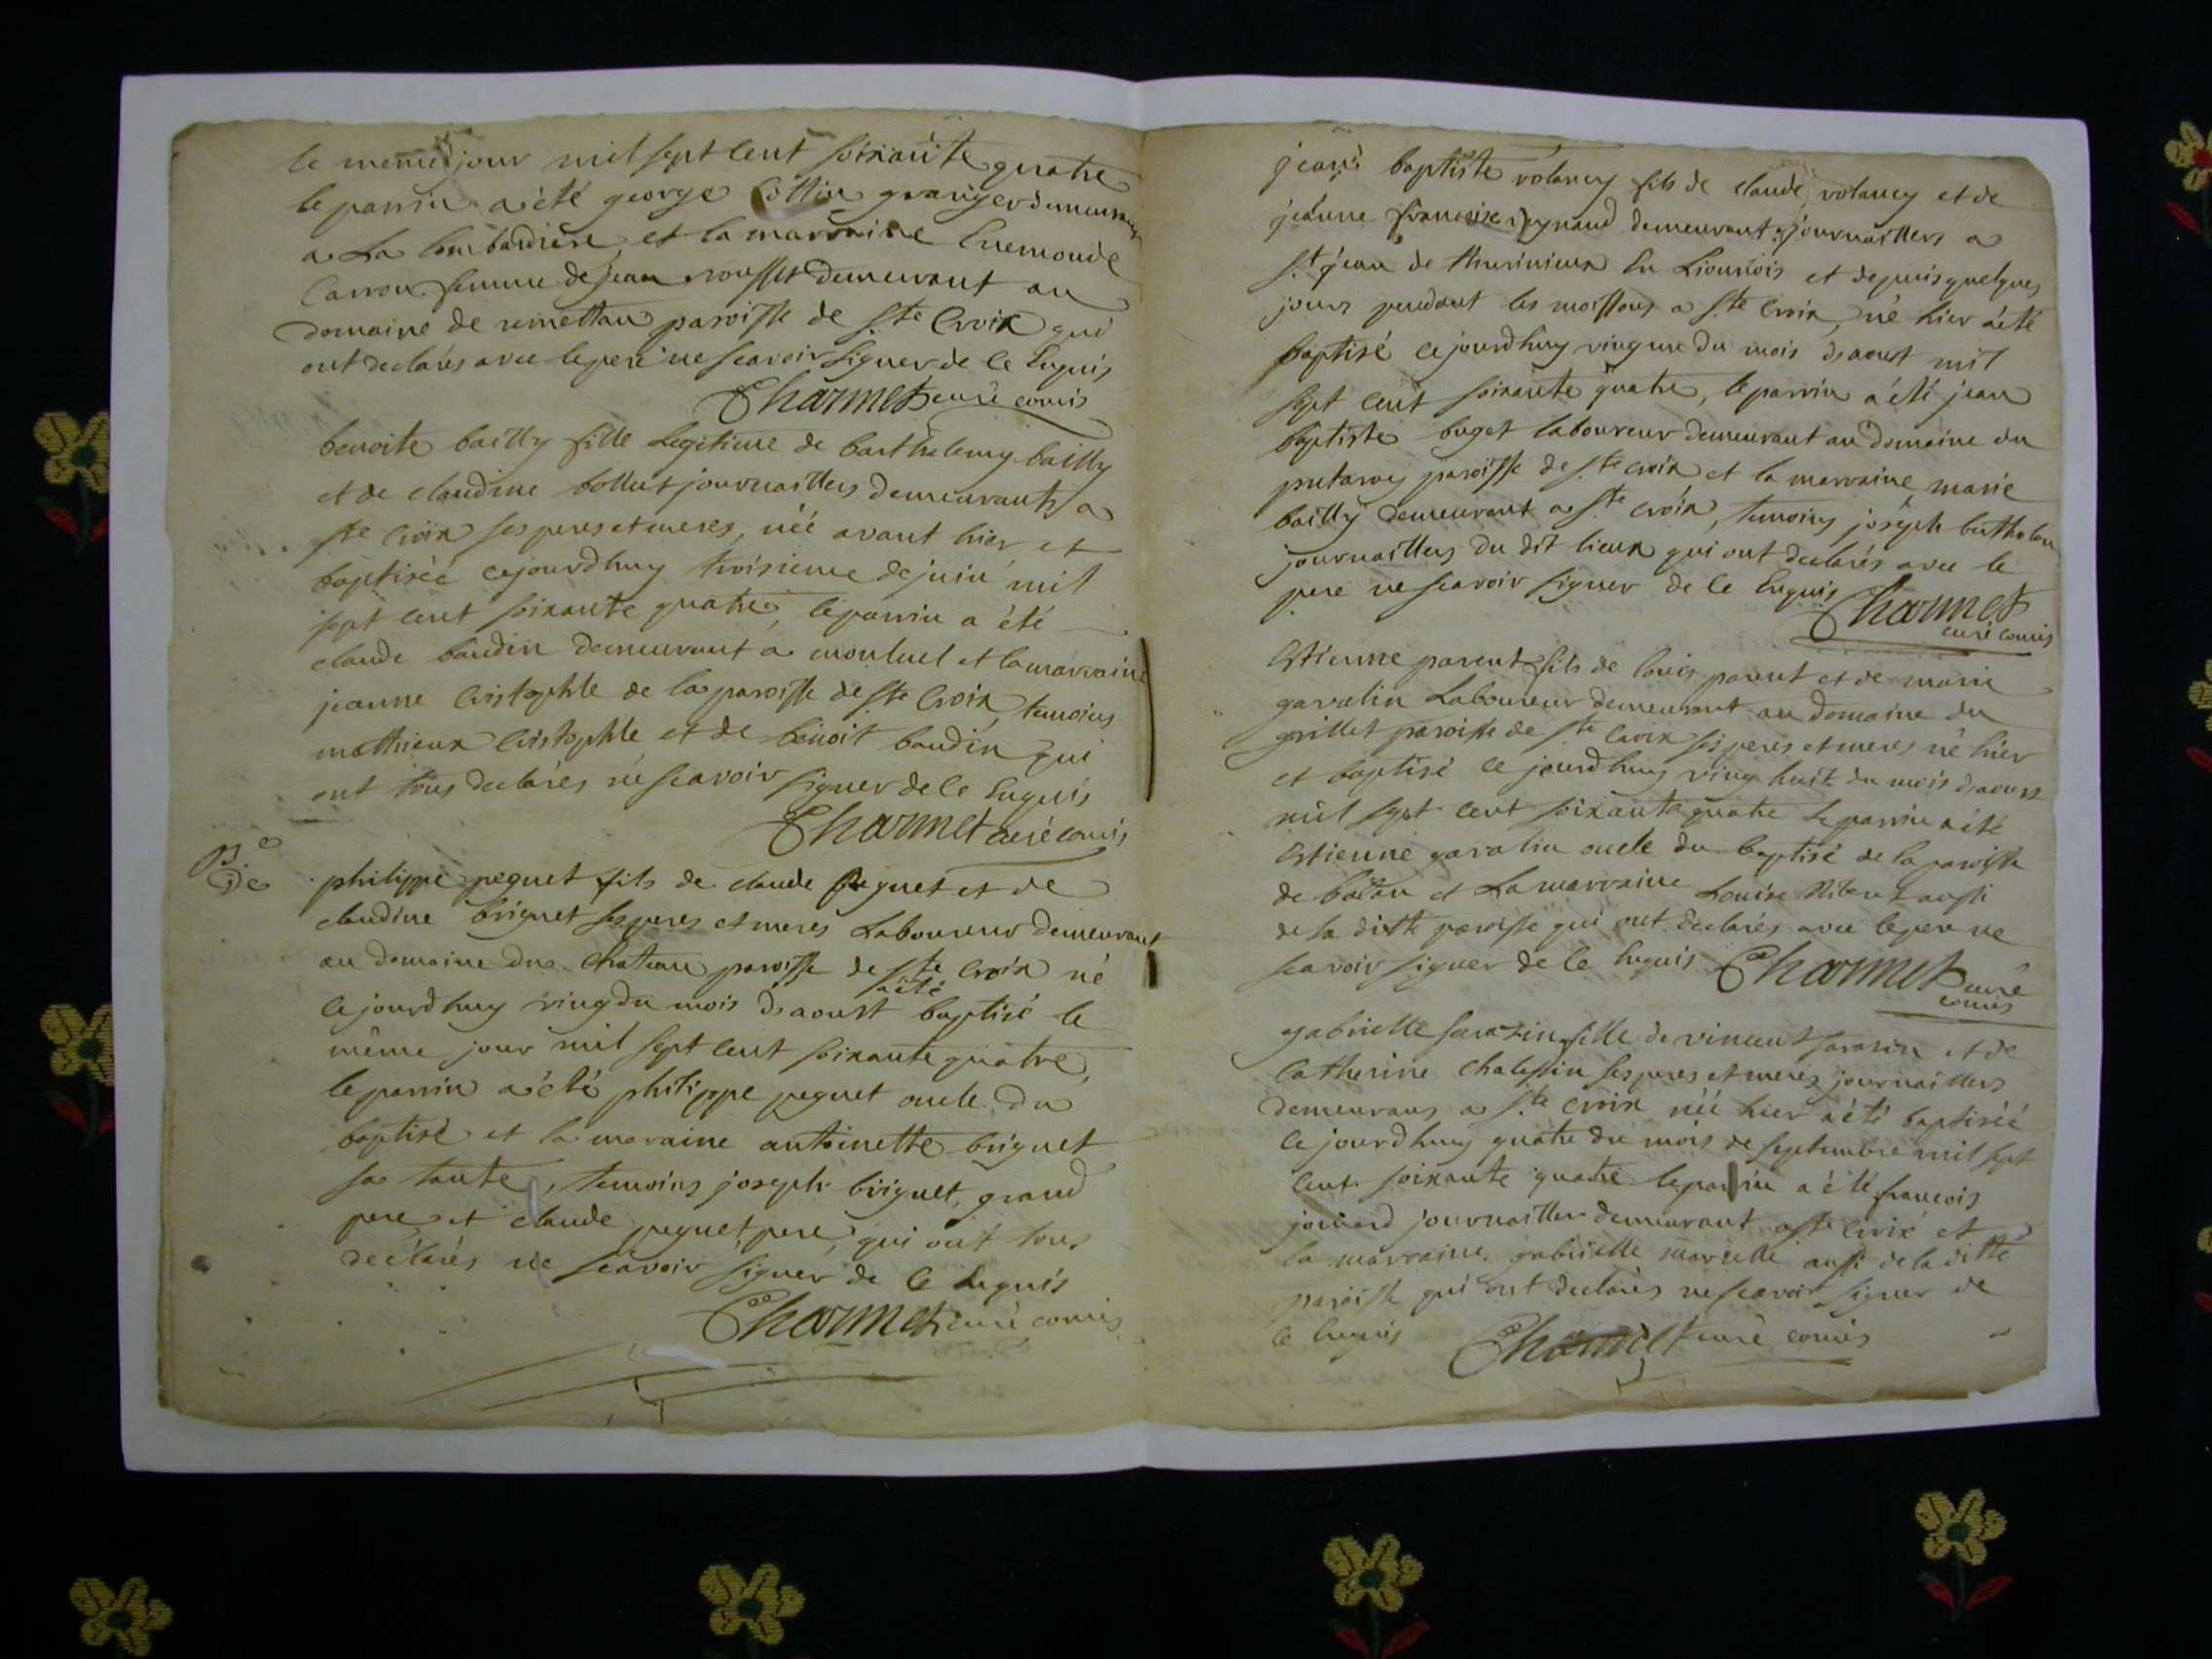 le meme jour mil sept cent soixante quatre
le parrin a été george Cottin granger demeurant
a La Lombardiere et la marraine Enemonde
Carron femme de jean rousset demeurant au
domaine de remettan paroisse de Ste Croix qui
ont declarés avec le pere ne scavoir signer de ce Enquis
Charmet curé comis
benoite bailly fille Legitime de barthelemy bailly
et de claudine bollut journailliers demeurants a
ste Croix ses peres et meres, née avant hier et
baptiseé cejourdhuy troisieme de juin mil
sept cent soixante quatre, le parrin a été
claude baudin demeurant a monluel et la marraine
jeanne Cristophle de la paroisse de Ste Croix, temoins
mathieux Cristophle et de benoit baudin qui
ont tous declarés ne scavoir signer de ce Enquis
Charmet curé comis
philippe peguet fils de claude peguet et de
claudine briguet ses peres et meres Laboureur demeurant
au domaine du chateau paroisse de Ste Croix né
a été
cejourdhuy ving du mois daoust baptisé le
même jour mil sept cent soixante quatre,
le parrin a été philippe peguet oncle du
baptisé et la maraine antoinette briguet
sa tante, temoins joseph briguet, grand
pere et claude peguet pere, qui ont tous
declarés ne scavoir signer de ce Enquis
Charmet curé comis
jean baptiste volancy fils de claude volancy et de
jeanne francoise regnaud demeurant journailliers a
St jean de thurinieux En Lionnois et depuis quelques
jours pendant les moissons a Ste Croix, né hier a été
baptisé cejourdhuy ving un du mois daoust mil
sept cent soixante quatre, le parrin a été jean
baptiste buget laboureur demeurant au domaine du
putaney paroisse de Ste croix et la marraine marie
bailly demeurant a Ste croix, temoins joseph bertholon
journailliers du dit lieux qui ont declarés avec le
pere ne scavoir signer de ce Enquis
Charmet
curé comis
Estienne parent fils de louis parent et de marie
gavalin Laboureur demeurant au domaine du
grillet paroisse de Ste Croix ses peres et meres né hier
et baptisé ce jourdhuy ving huit du mois daoust
mil sept cent soixante quatre le parrin a été
Estienne gavalin oncle du baptisé de la paroisse
de balan et La marraine Louise aussi
de la ditte paroisse qui ont declarés avec le pere ne
scavoir signer de ce Enquis Charmet curé
comis
gabrielle sarazin fille de vincent sarazin et de
Catherine chalessin ses peres et meres journailliers
demeurans a Ste croix née hier a été baptiseé
ce jourdhuy quatre du mois de septembre mil sept
cent soixante quatre le parrin a été francois
journaillier demeurant a Ste Croix et
la marraine gabrielle aussi de la ditte
paroisse qui ont declarés ne scavoir signer de
ce Enquis Charmet curé comis